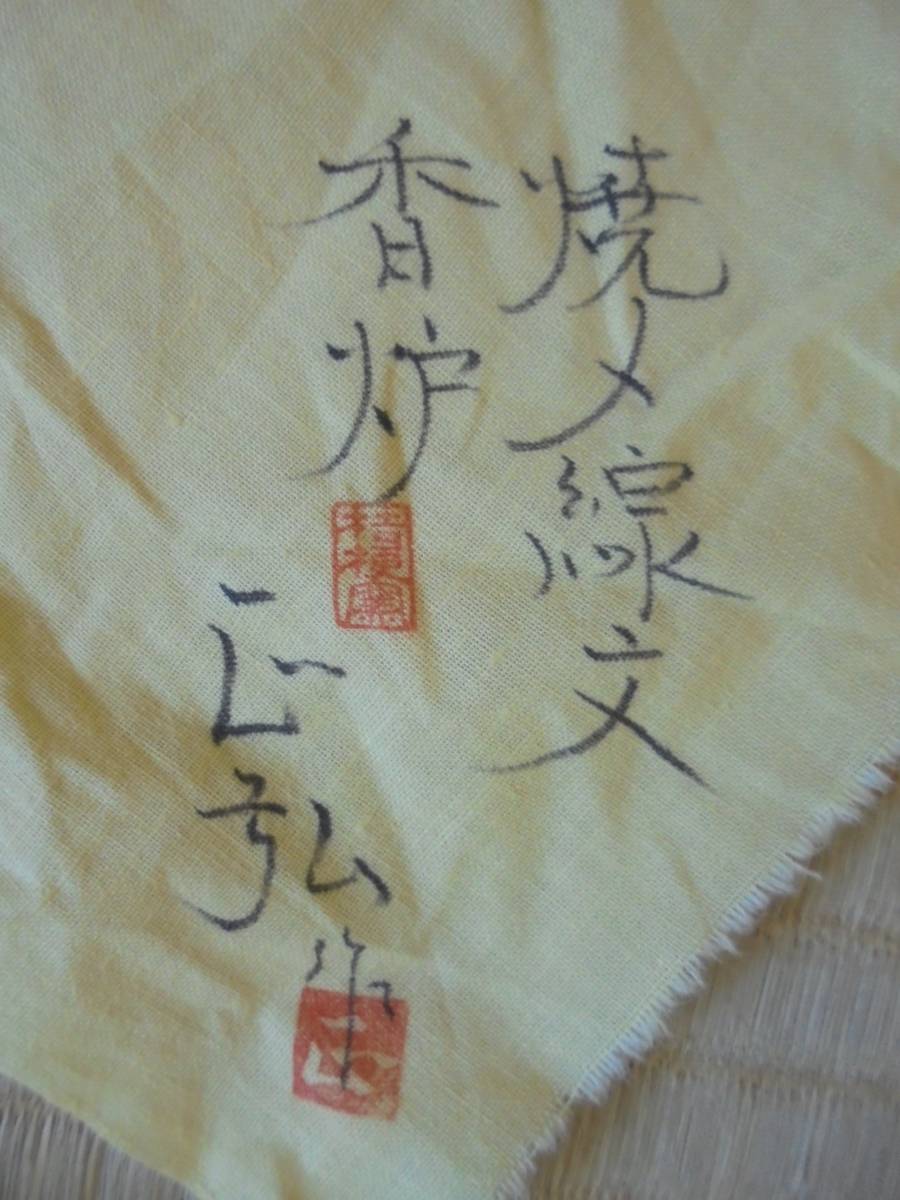 焼〆線文
香炉
正弘作
正